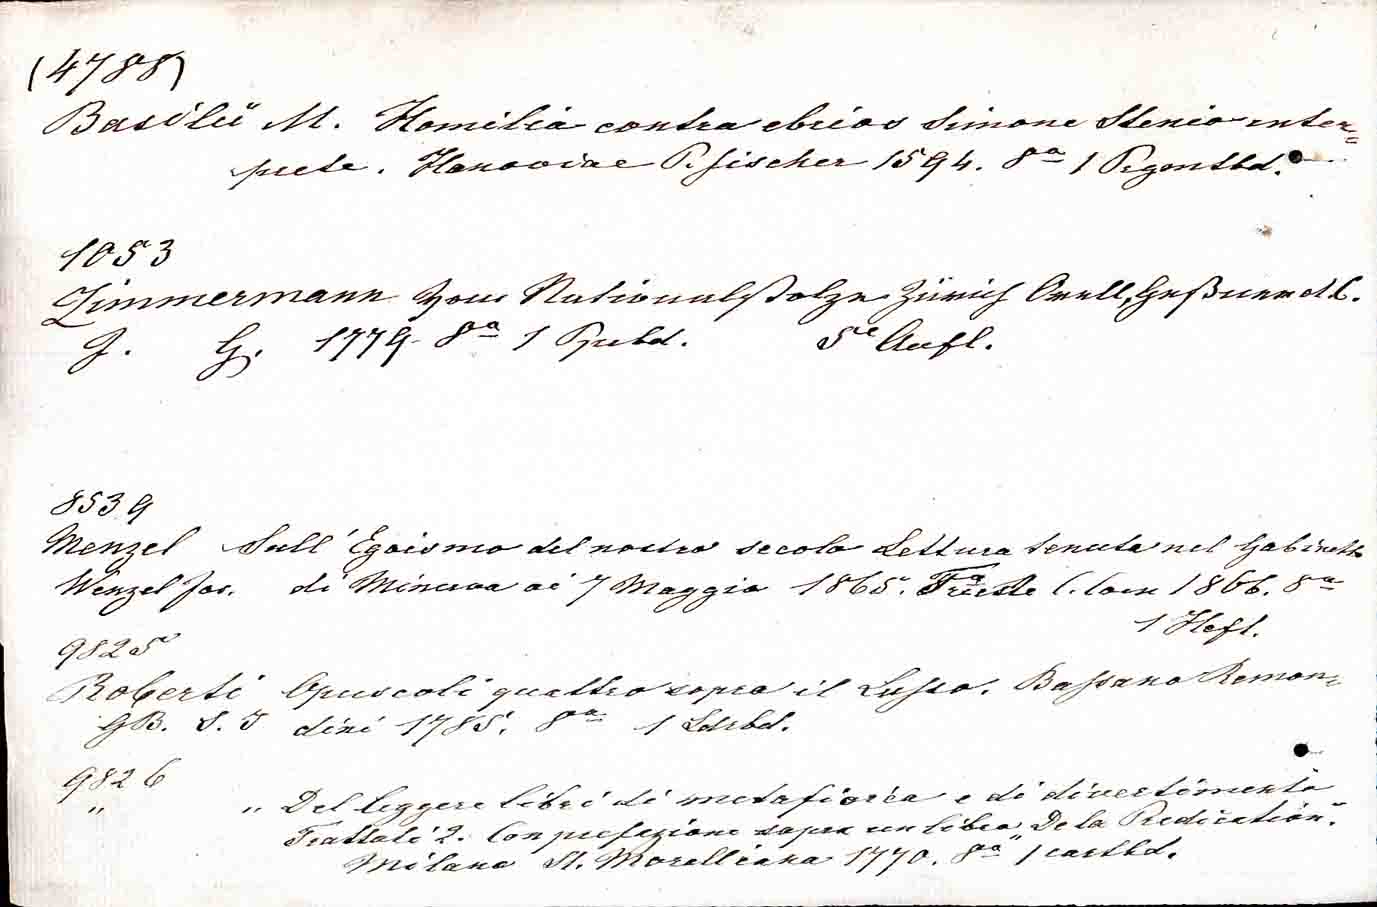 (4788)
Basilii M. Homilia contra ebrios Simone Stenio inter=
prete. Hanoviae P. Fischer 1594. 8º 1 Prgmtbd.
1053
Zimmermann Vom Nationalstolze Zürich Orell, Geßner etc.
J. G. 1779 8º 1 Ppbd. 5e Aufl.
8539
Menzel Sull' Egoismo del nostro secolo Lettura tenuta nel Gabinetto
Wenzel Jos. di Minerva ai 7 Maggio 1865. Trieste C. Coen 1866. 8º
1 Heft.
9825
Roberti Opuscoli quattro sopra il Lusso. Bassano Remon=
GB. S. J dini 1785. 8º 1 Ldrbd.
9826
" " Del leggere libri di metafisica e di divertimento
Trattati 2. Con prefazione sopra un libro "De la Prédication."
Milano St. Morelliana 1770. 8º 1 cartbd.